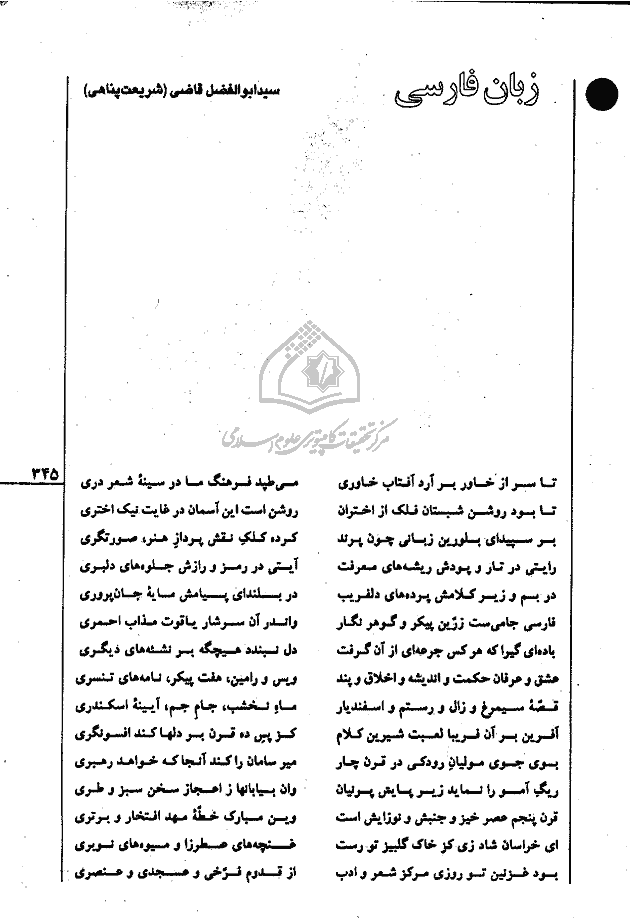 زبان فارسی
سیدابوالفضل قاضی (شریعت‌پناهی)
مرکز تحقیقات کامپیوتری علوم اسلامی
۳۴۵
تا سر از خاور بر آرد آفتاب خاوری می‌طپد فرهنگ ما در سینهٔ شعر دری
تا بود روشن شبستان فلک از اختران روشن است این آسمان در غایت نیک اختری
بر سپیدای بلورین زبانی چون پرند کرده کلکِ نقش پردازِ هنر، صورتگری
رایتی در تار و پودش ریشه‌های معرفت آیتی در رمز و رازش جلوه‌های دلبری
در بم و زیر کلامش پرده‌های دلفریب در بلندای پیامش مایهٔ جان‌پروری
فارسی جامی‌ست زرّین پیکر و گوهر نگار واندر آن سرشار یاقوت مذاب احمری
باده‌ای گیرا که هر کس جرعه‌ای از آن گرفت دل نبندد هیچگه بر نشئه‌های دیگری
عشق و عرفان حکمت و اندیشه و اخلاق و پند ویس و رامین، هفت پیکر، نامه‌های تنسری
قصّهٔ سیمرغ و زال و رستم و اسفندیار ماهِ نخشب، جام جم، آیینهٔ اسکندری
آفرین بر آن فریبا لعبت شیرین کلام کز پس ده قرن بر دلها کند افسونگری
بوی جوی مولیانِ رودکی در قرن چار میر سامان را کند آنجا که خواهد رهبری
ریگِ آمو را نماید زیر پایش پرنیان وان بیابانها ز اعجاز سخن سبز و طری
قرن پنجم عصر خیز و جنبش و نوزایش است وین مبارک خطّهٔ مهد افتخار و برتری
ای خراسان شاد زی کز خاک گلبیز تو رست غنچه‌های عطرزا و میوه‌های نوبری
بود غزنین تو روزی مرکز شعر و ادب از قدوم فرّخی و عسجدی و عنصری